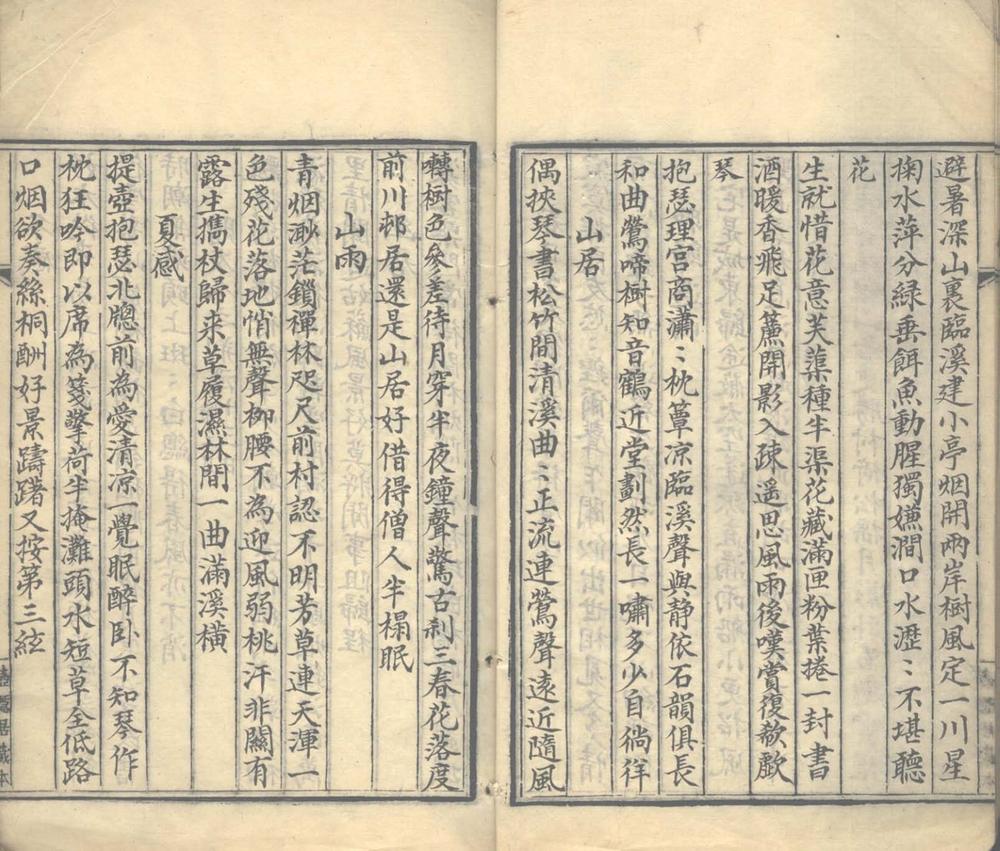 避暑深山裏臨溪建小亭烟開兩岸樹風定一川星
掬水萍分綠垂餌魚動腥獨嫌澗口水瀝〻不堪聽
花
生就惜花意芙蕖種半渠花藏滿匣粉葉捲一封書
酒暖香飛足簾開影入疎遥思風雨後嘆賞復欷歔
琴
抱瑟理宮商瀟〻枕簟凉臨溪聲與静依石韻俱長
和曲鶯啼樹知音鶴近堂劃然長一嘯多少自徜徉
山居
偶挾琴書松竹間清溪曲〻正流連鶯聲遠近隨風
囀樹色參差待月穿半夜鐘聲驚古刹三春花落度
前川邨居還是山居好借得僧人半榻眠
山雨
青烟渺茫鎖禪林咫尺前村認不明芳草連天渾一
色殘花落地悄無聲柳腰不為迎風弱桃汗非關有
露生攜杖歸来草履濕林間一曲滿溪橫
夏感
提壺抱瑟北牎前為愛清凉一覺眠醉卧不知琴作
枕狂吟即以席為箋擎荷半掩灘頭水短草全低路
口烟欲奏絲桐酬好景躊躇又按第三絃
居藏本